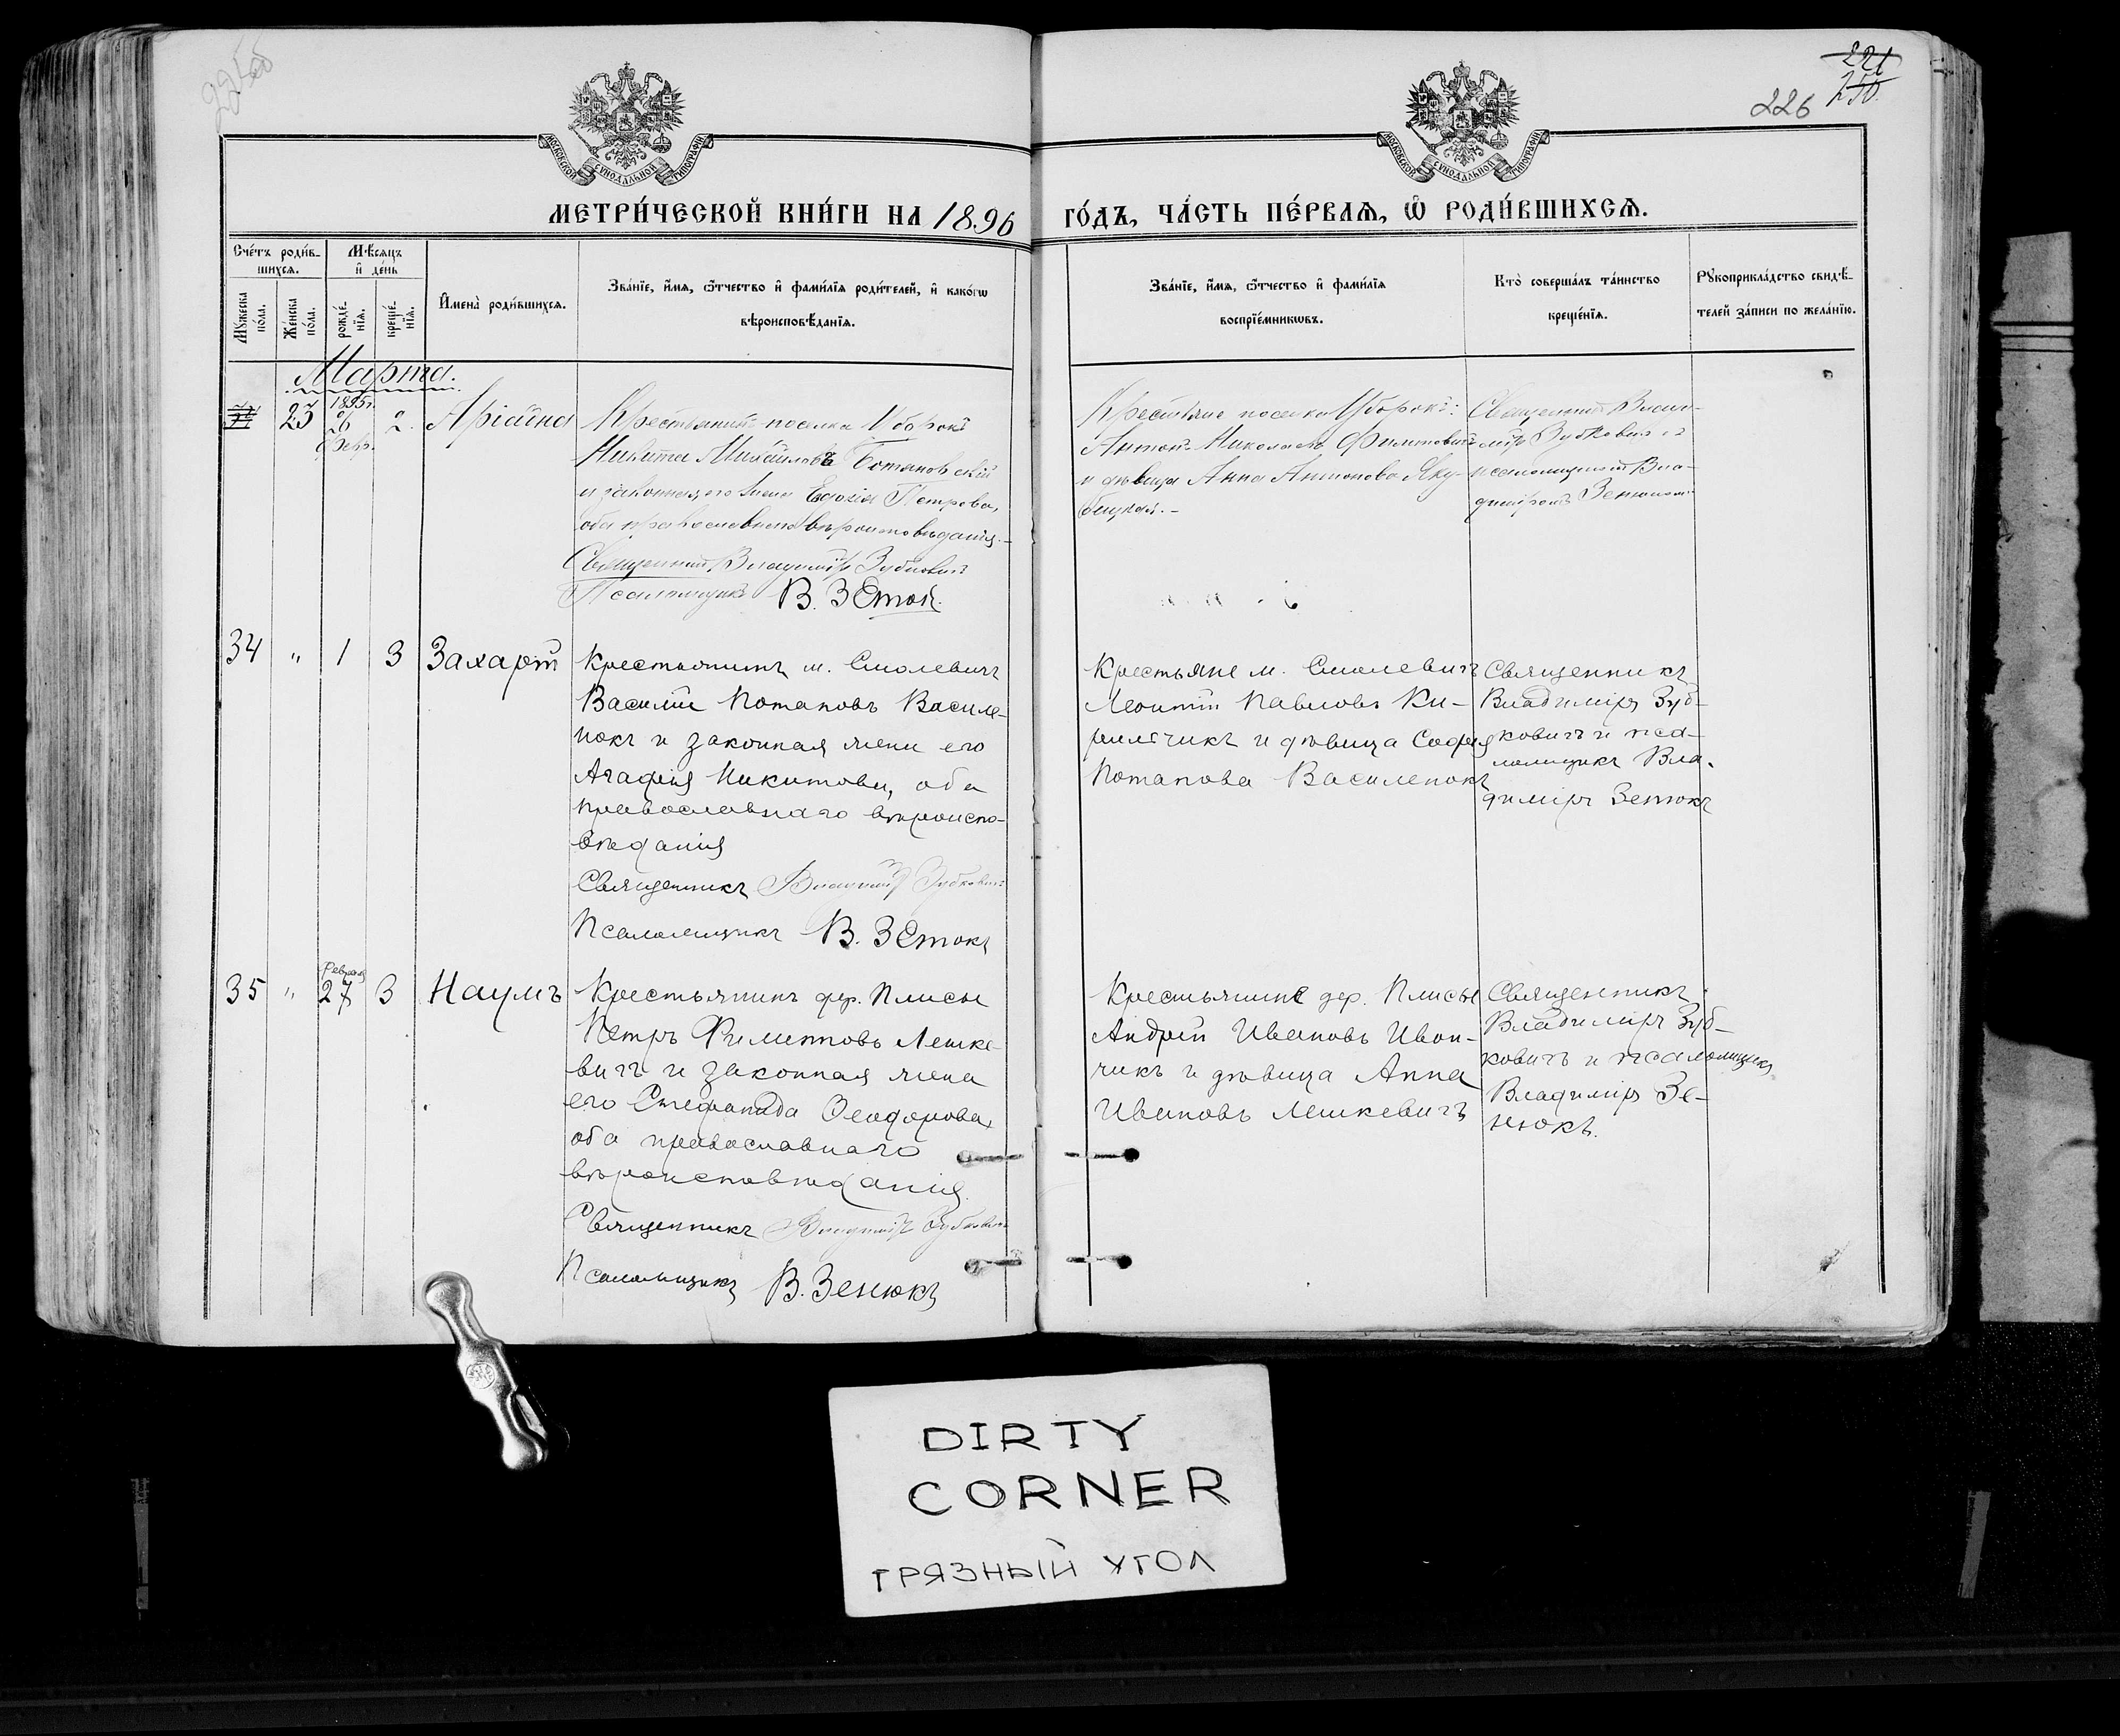 221
250.
226
МОСКОВСКОЙ СУНОДАЛЬНОЙ ТИПОГРАФІИ
МОСКОВСКОЙ СУНОДАЛЬНОЙ ТИПОГРАФІИ
МЕТРИ́ЧЕСКОЙ КНИ́ГИ НА 1896 ГО́ДЪ, ЧА́СТЬ ПЕ́РВАЯ, Ѡ РОДИ́ВШИХСЯ.
Сче́тъ роди́в-
шихся.
Мѣсяцъ
и де́нь
Му́жеска по́ла.
Же́нска по́ла.
рожде́-
нія.
креще́-
нія.
Имена̀ роди́вшихся.
Зва́ніе, и́мя, ѿтчество и фами́лія роди́телей, и како́гω
вѣроисповѣданія.
Зва́ніе, и́мя, ѿтчество и фами́лія
воспріе́мниковъ.
Кто̀ соверша́лъ та́инство
креще́нія.
Рукоприкла́дство свидѣ-
телей за́писи по жела́нію.
Марта.
23
1895г.
26
Февр.
2.
Аріадна
Крестьянинъ поселка Уборокъ
Никита Михайловъ Ботяновскій
и законная его жена Евдокія Петрова,
оба православнаго вѣроисповѣданія.-
Священникъ Владиміръ Зубковичъ
Псаломщикъ В. Зенюк.
Крестьяне поселка Уборокъ:
Антонъ Николаевъ
и дѣвица Анна Антонова Яку-
бицкая.-
Священникъ Влади-
міръ Зубковичъ съ
псаломщикомъ Вла-
диміромъ Зенюкомъ.
34 " 1 3 Захарій
Крестьянинъ м. Смолевичъ
Василій Потаповъ Василе-
нокъ и законная жена его
Агафія Никитова, оба
православнаго вѣроиспо-
вѣданія
Священникъ Владиміръ Зубковичъ
Псаломщикъ В. Зенюкъ
Крестьяне м. Смолевичъ
Леонтій Павловъ Ки-
рильчикъ и дѣвица Софія
Потапова Василенокъ
Священникъ
Владиміръ Зуб-
ковичъ и пса-
ломщикъ Вла-
диміръ Зенюкъ
35 "
Февраля
27 3 Наумъ
Крестьянинъ дер. Плисы
Петръ Филипповъ Лешке-
вичъ и законная жена
его Стефанида Ѳеодорова,
оба православнаго
вѣроисповѣданія.
Священникъ Владиміръ Зубковичъ
Псаломщикъ В. Зенюкъ
Крестьяне дер. Плисы
Андрей Ивановъ Ивон-
чикъ и дѣвица Анна
Ивановъ Лешкевичъ
Священникъ
Владиміръ Зуб-
ковичъ и псаломщикъ
Владиміръ Зе-
нюкъ.
DIRTY
CORNER
ГРЯЗНЫЙ УГОЛ